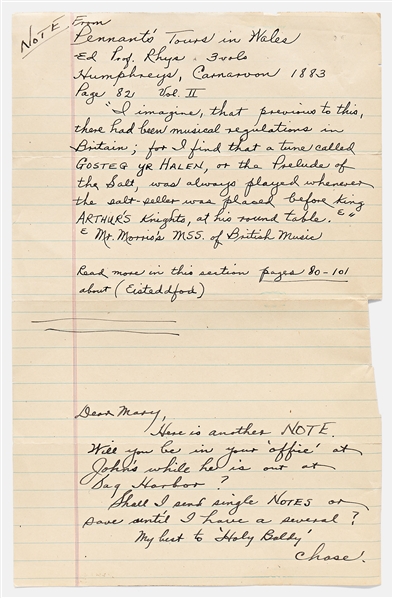 NOTE
From
Pennant's Tours in Wales
Ed Prof. Rhys. 3 vols
Humphreys, Carnarvon 1883
Page 82 Vol. II
"I imagine, that previous to this,
there had been musical regulations in
Britain; for I find that a tune called
GOSTEG YR HALEN, or the Prelude of
the Salt, was always played whenever
the salt-seller was placed before King
ARTHUR'S Knights, at his round table. "
Mr. Morris's MSS. of British Music
Read more in this section pages 80-101
about (Eisteddfod)
Dear Mary,
Here is another NOTE.
Will you be in your 'office' at
John's while he is out at
Sag Harbor?
Shall I send single NOTES or
save until I have a several?
My best to 'Holy Bolly'
Chase.